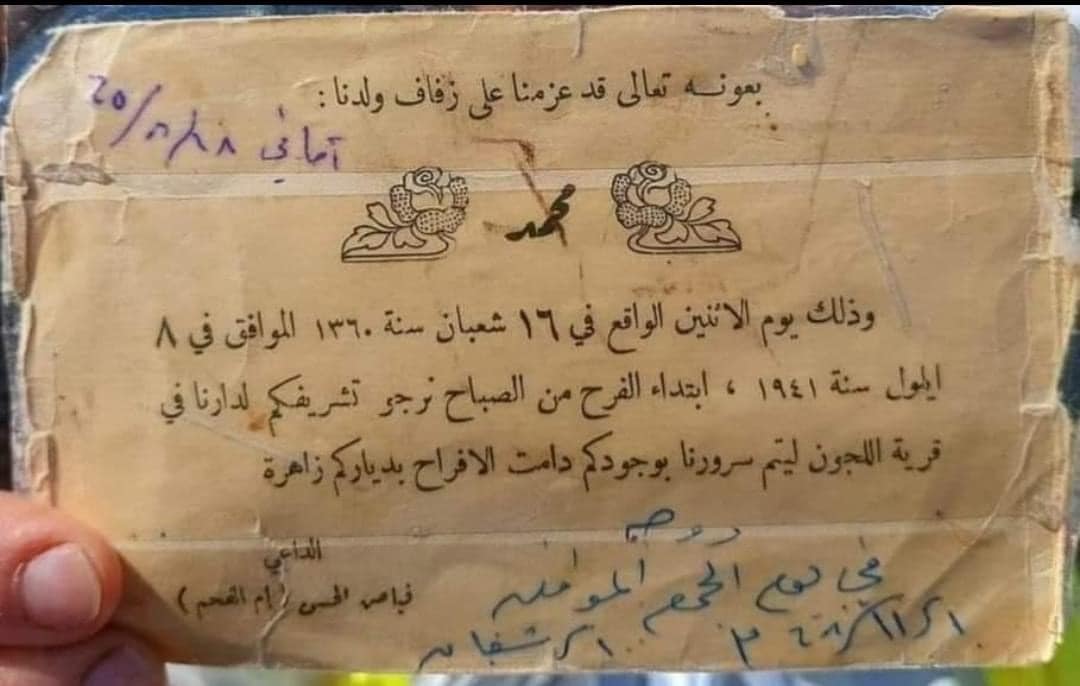 بعونه تعالى قد عزمنا على زفاف ولدنا :
أماني
محمد
وذلك يوم الاثنين الواقع في ١٦ شعبان سنة ١٣٦٠ الموافق في ٨
ايلول سنة ١٩٤١ ، ابتداء الفرح من الصباح نرجو تشريفكم لدارنا في
قرية اللجون ليتم سرورنا بوجودكم دامت الافراح بدياركم زاهرة
الداعي
فياض الحسن ( ام الفحم )
في يوم الجمعه الموافق